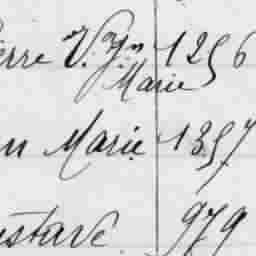 erre V. Jn 1256
Marie
n Marie 1357
ustave. 979